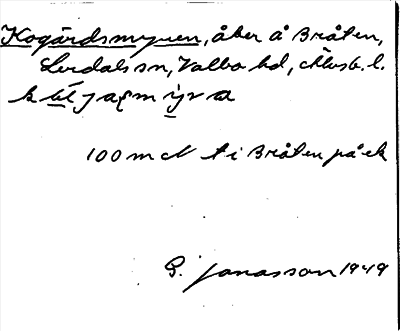 Kogärdsmyren, åker å Bråten,
Lerdals sn, Valbo hd, Älvsb. l.
100 m N t i Bråten på ek
G. Jonasson 1949